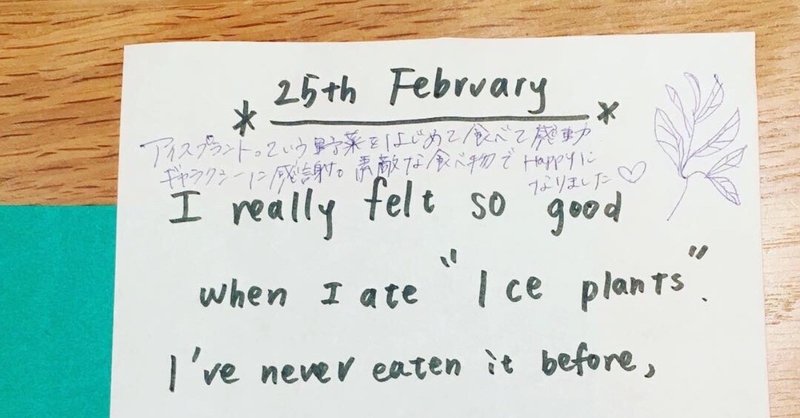 * 25th February *
アイスプラント。という野菜をはじめて食べて感動
ギャラクシーに感謝。素敵な食べ物で Happyに
なりました♡
I really felt so good
when I ate "Ice plants".
I've never eaten it before,